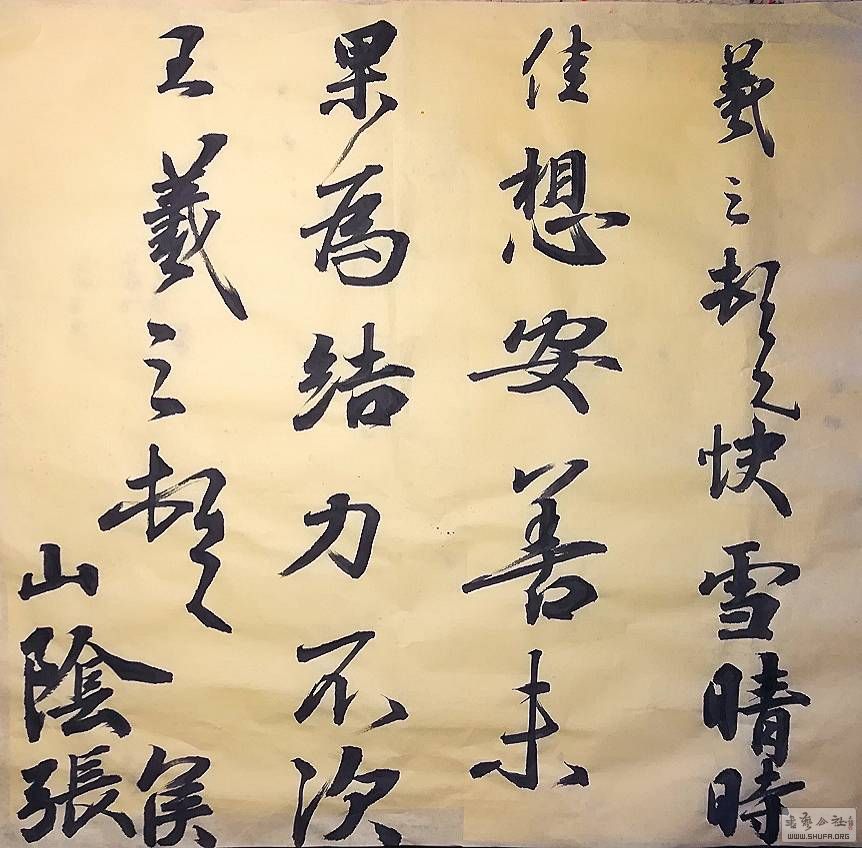 羲之頓首快雪晴時
佳想安善未
果為結力不次
王羲之頓首
山陰張
侯
书艺公社
WWW.SHUFA.ORG